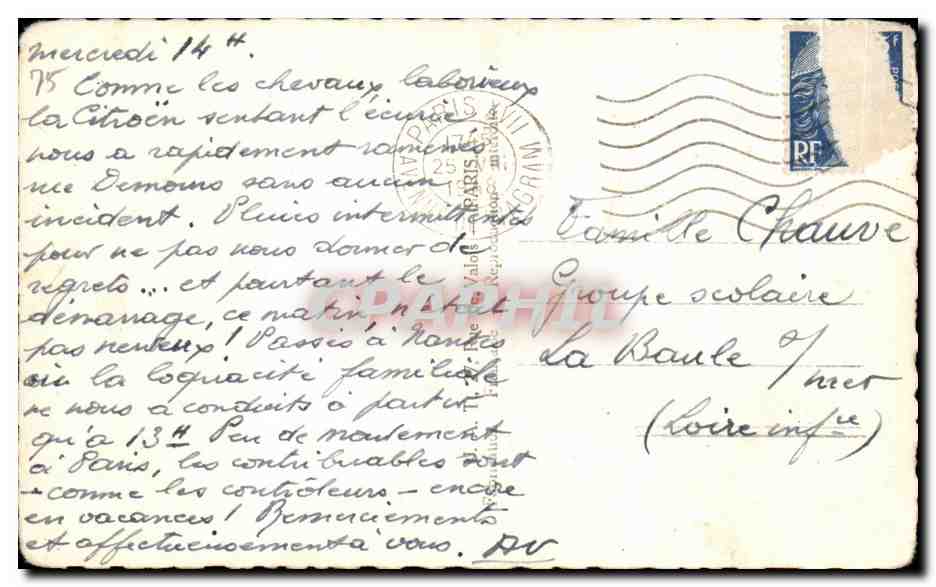 mercredi 14 H.
75 Comme les chevaux laborieux
la Citroën sentant l'écurie
nous a rapidement ramenés
rue Demours sans aucun
incident. Pluies intermittentes
pour ne pas nous donner de
regrets... et pourtant le
démarrage, ce matin, n'était
pas neuveux! Passés à Nantes
où la loquacité familiale
ne nous a conduits à partir
qu'à 13H Peu de mouvement
à Paris, les contribuables sont
- comme les contrôleurs - encore
en vacances! Remerciements
et affectueusement à vous. AV
PARIS XVII
17
25
Rue Valois - PARIS
Reproduction interdite
RF
Famille Chauve
Groupe scolaire
La Baule s/
mer
(Loire infre)
CPAPHIL